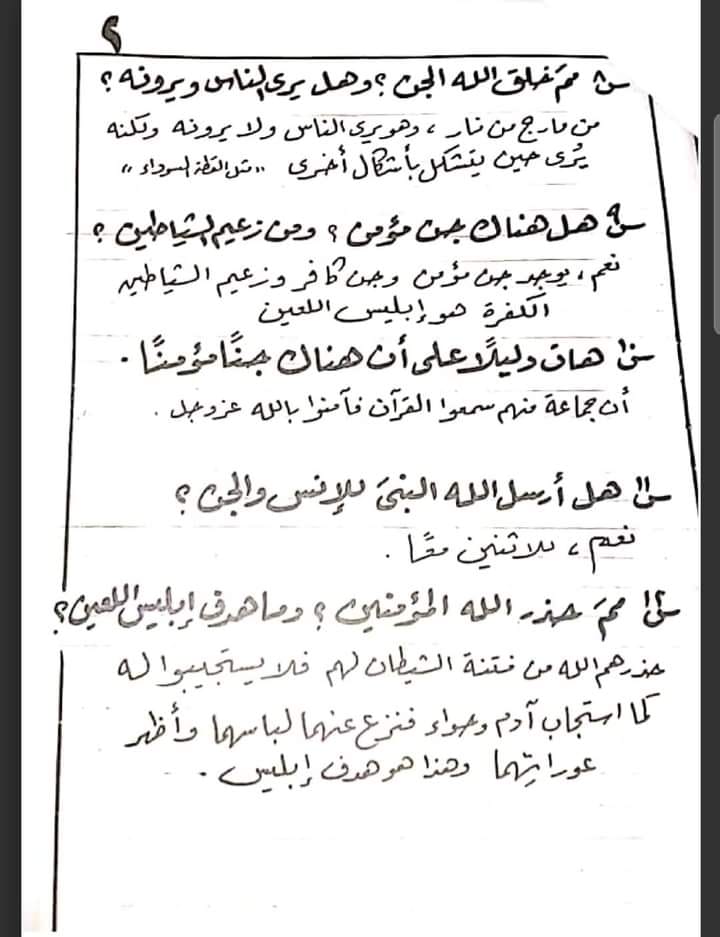 ٢
س٨ مم خلق الله الجن ؟ وهل يرى الناس ويرونه ؟
من مارج من نار ، وهو يرى الناس ولا يرونه ولكنه
يُرى حين يتشكل بأشكال أخرى "مثل القطة السوداء"
س٩ هل هناك جن مؤمن ؟ ومن زعيم الشياطين ؟
نعم ، يوجد جن مؤمن وجن كافر وزعيم الشياطين
الكفرة هو إبليس اللعين
س١٠ هات دليلًا على أن هناك جنًا مؤمنًا .
أن جماعة منهم سمعوا القرآن فآمنوا بالله عز وجل .
س١١ هل أرسل الله النبى للإنس والجن ؟
نعم ، للاثنين معًا .
س١٢ مم حذر الله المؤمنين ؟ وما هدف إبليس اللعين ؟
حذرهم الله من فتنة الشيطان لهم فلا يستجيبوا له
كما استجاب آدم وحواء فنزع عنهما لباسهما وأظهر
عوراتهما وهذا هو هدف إبليس .